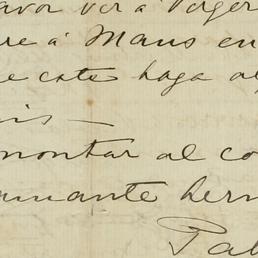 avor ver á
re á Maus en
e este haga al
is —
montar al co
amante her
Pab